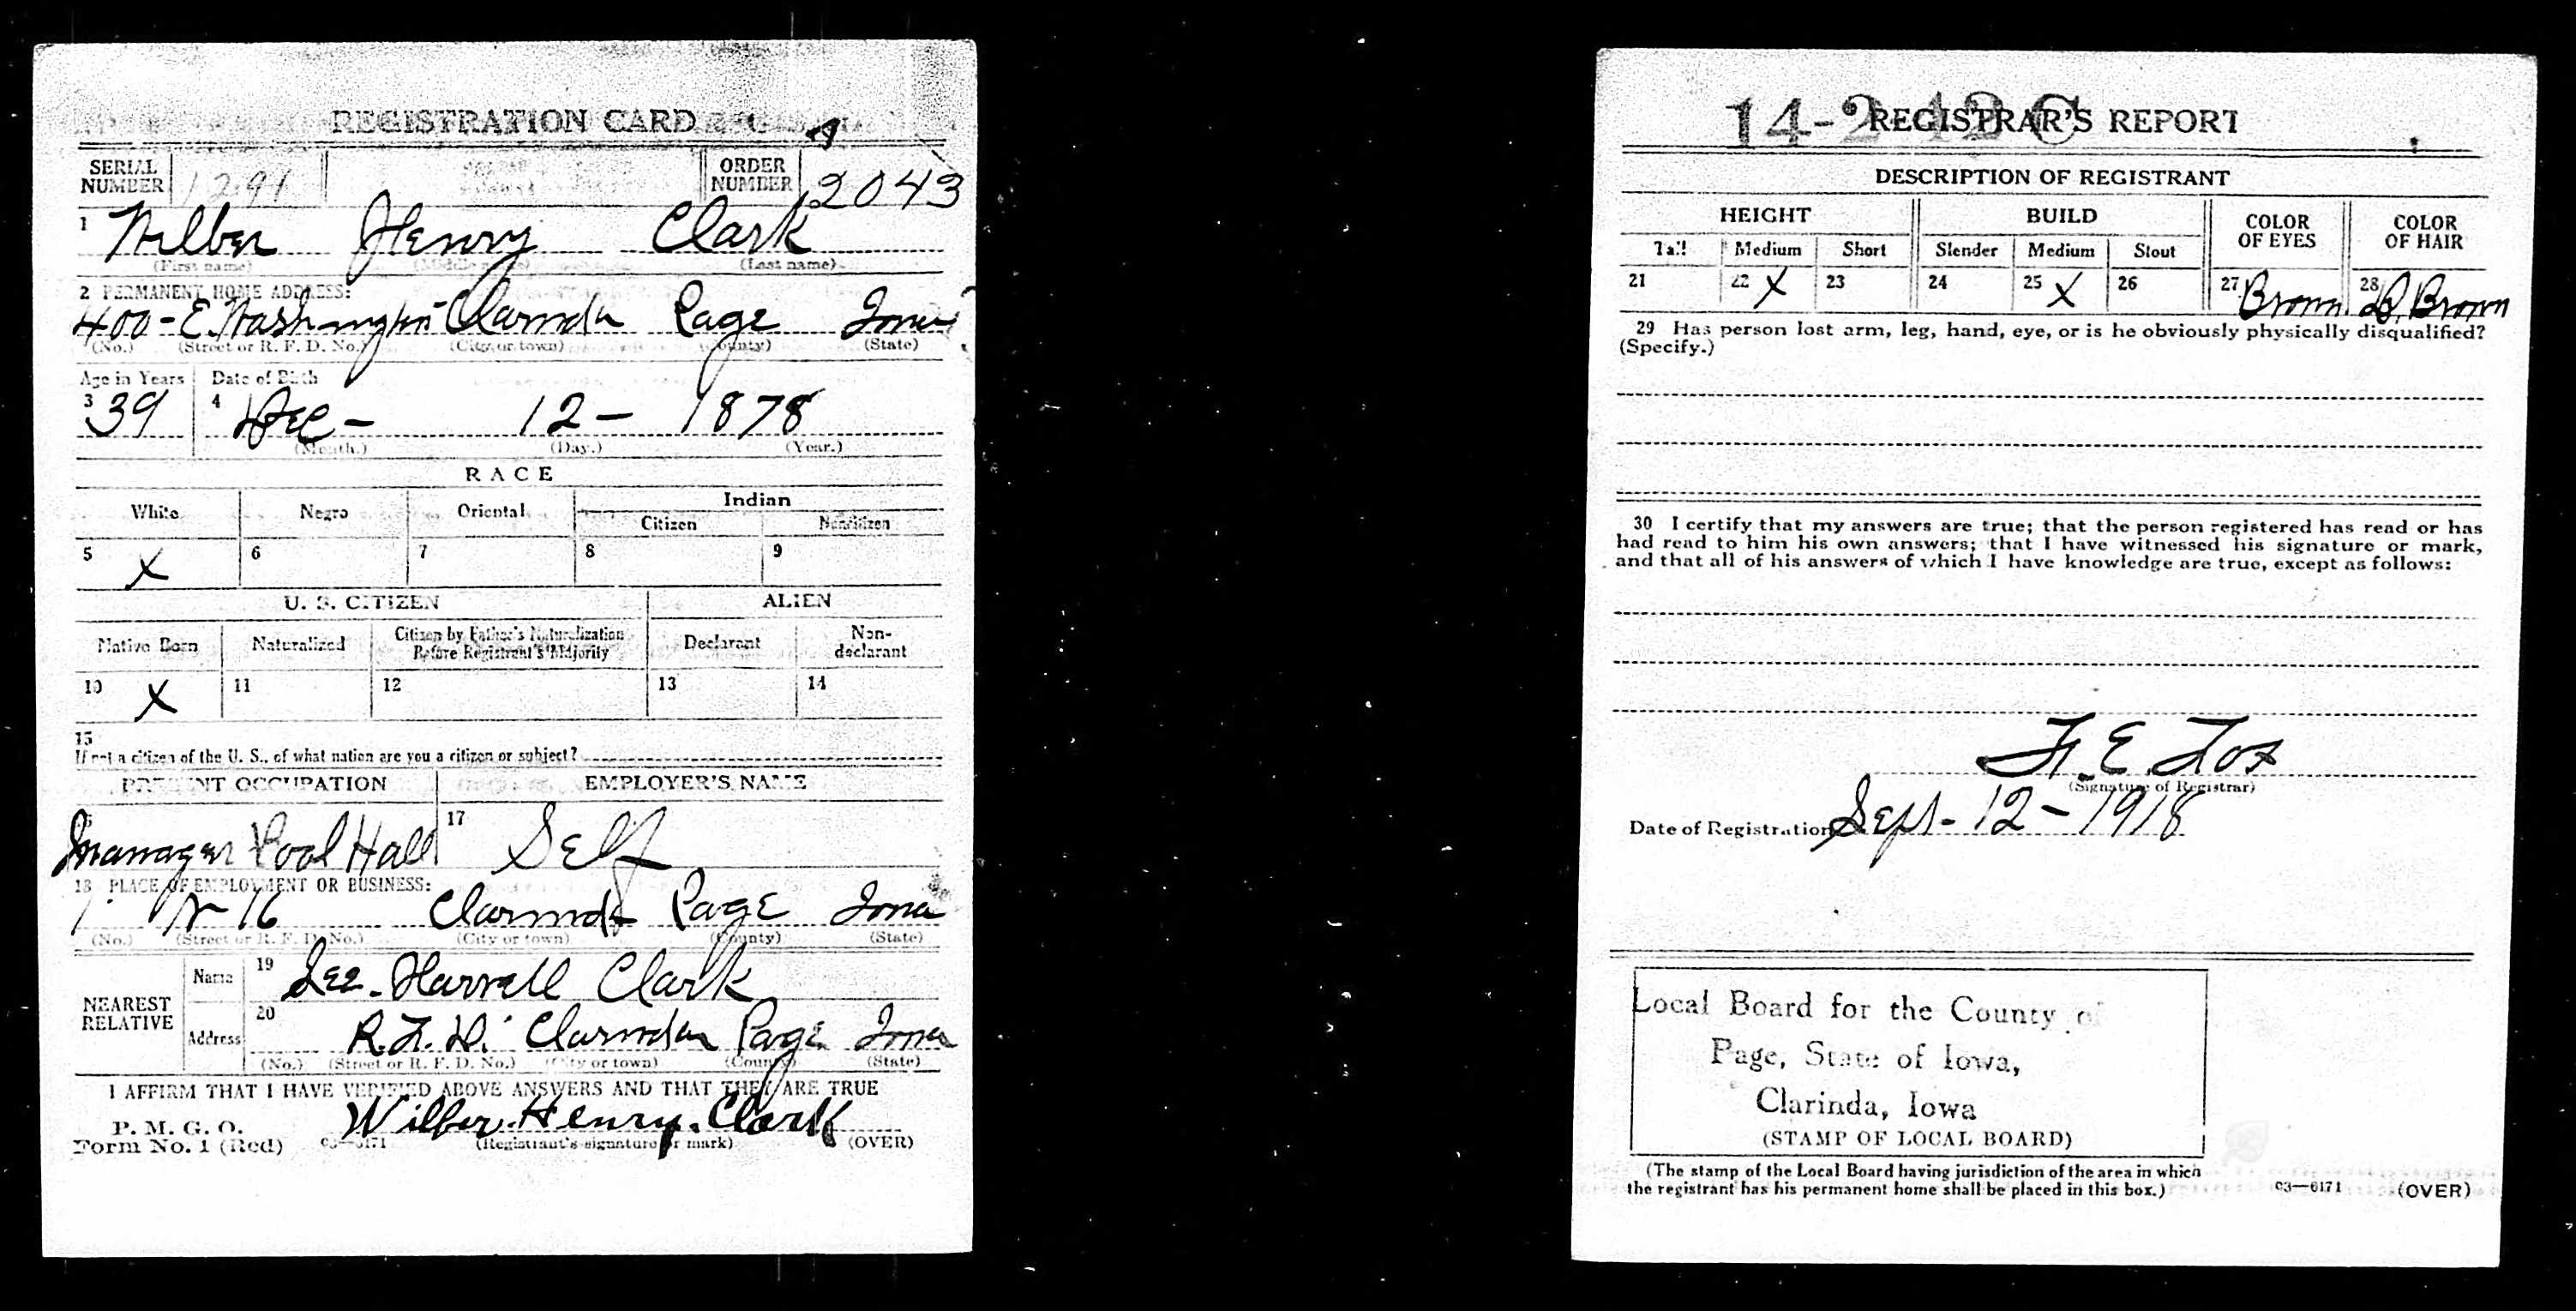 REGISTRATION CARD
SERIAL NUMBER 1291 ORDER NUMBER 2043
1 Wilber Henry Clark
(First name) (Middle name) (Last name)
2 PERMANENT HOME ADDRESS:
400 - E. Washington Clarinda Page Iowa
(No.) (Street or R. F. D. No.) (City or town) (County) (State)
Age in Years Date of Birth
3 39 4 Dec - 12 - 1878
(Month.) (Day.) (Year.)
RACE
White Negro Oriental Indian
Citizen Noncitizen
5 X 6 7 8 9
U. S. CITIZEN ALIEN
Native Born Naturalized Citizen by Father's Naturalization Before Registrant's Majority Declarant Non-declarant
10 X 11 12 13 14
15
If not a citizen of the U. S., of what nation are you a citizen or subject?
PRESENT OCCUPATION EMPLOYER'S NAME
16 Manager Pool Hall 17 Self
18 PLACE OF EMPLOYMENT OR BUSINESS:
16 Clarinda Page Iowa
(No.) (Street or R. F. D. No.) (City or town) (County) (State)
NEAREST RELATIVE
Name 19 Lee. Harrell Clark
Address 20 R.F.D. Clarinda Page Iowa
(No.) (Street or R. F. D. No.) (City or town) (County) (State)
I AFFIRM THAT I HAVE VERIFIED ABOVE ANSWERS AND THAT THEY ARE TRUE
P. M. G. O.
Form No. 1 (Red) 03—6171 Wilber. Henry. Clark
(Registrant's signature or mark) (OVER)
14-2-12 C
REGISTRAR'S REPORT
DESCRIPTION OF REGISTRANT
HEIGHT BUILD COLOR OF EYES COLOR OF HAIR
Tall Medium Short Slender Medium Stout
21 22 X 23 24 25 X 26 27 Brown 28 D. Brown
29 Has person lost arm, leg, hand, eye, or is he obviously physically disqualified?
(Specify.)
30 I certify that my answers are true; that the person registered has read or has
had read to him his own answers; that I have witnessed his signature or mark,
and that all of his answers of which I have knowledge are true, except as follows:
F. E. Fox
(Signature of Registrar)
Date of Registration Sept - 12 - 1918
Local Board for the County of
Page, State of Iowa,
Clarinda, Iowa
(STAMP OF LOCAL BOARD)
(The stamp of the Local Board having jurisdiction of the area in which
the registrant has his permanent home shall be placed in this box.)
03—6171 (OVER)